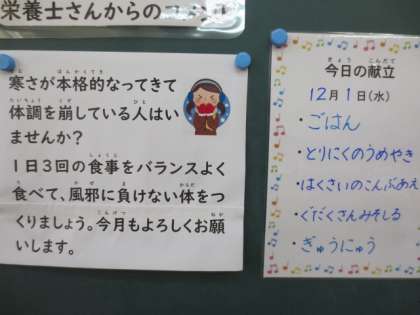 栄養士さんからのコメント
寒さが本格的なってきて
体調を崩している人はい
ませんか?
1日3回の食事をバランスよく
食べて、風邪に負けない体をつ
くりましょう。今月もよろしくお願
いします。
今日の献立
12月1日(水)
・ごはん
・とりにくのうめやき
・はくさいのこんぶあえ
・ぐだくさんみそしる
・ぎゅうにゅう